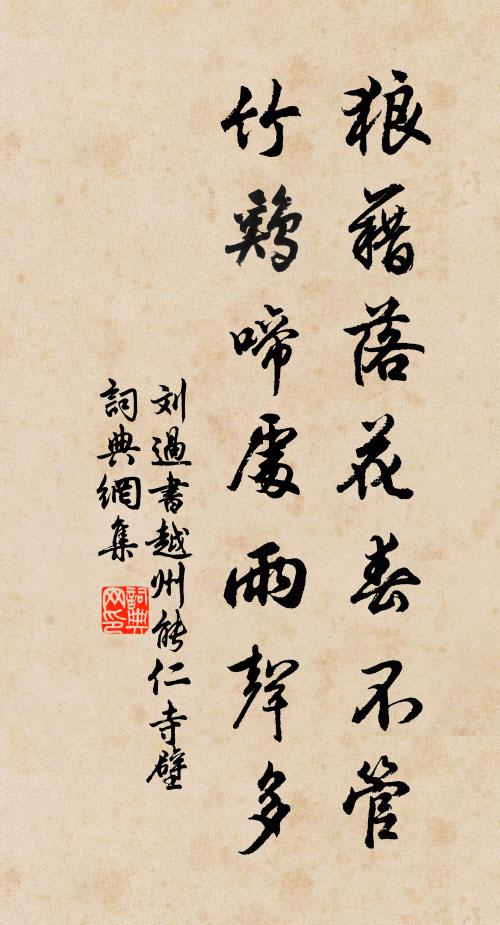 狼藉落花春不管
竹鷄啼處雨聲多
刘過書越州能仁寺壁
詞典網集
詞典网印